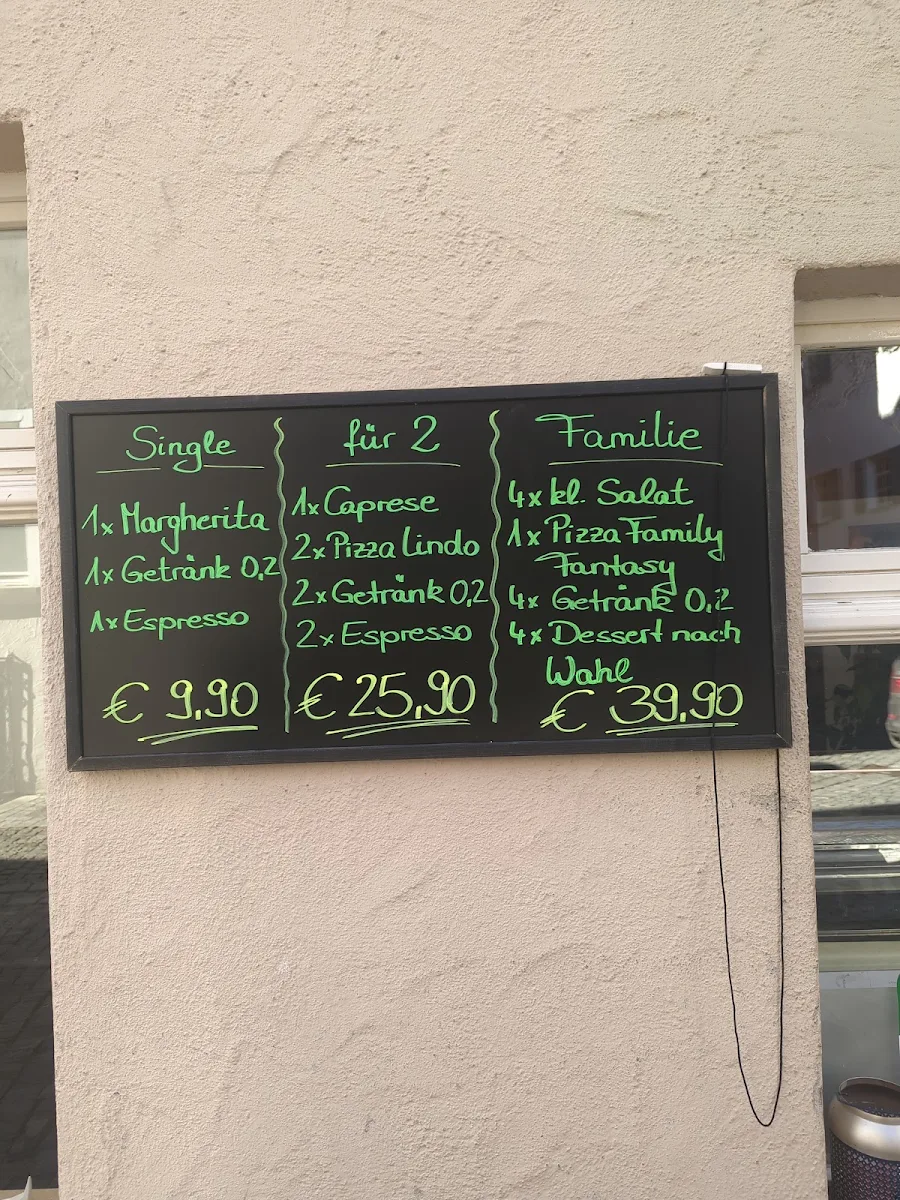 Single
1x Margherita
1x Getränk 0,2
1x Espresso
€ 9,90
für 2
1x Caprese
2x Pizza Lindo
2x Getränk 0,2
2x Espresso
€ 25,90
Familie
4x kl. Salat
1x Pizza Family
Fantasy
4x Getränk 0,2
4x Dessert nach
Wahl
€ 39,90